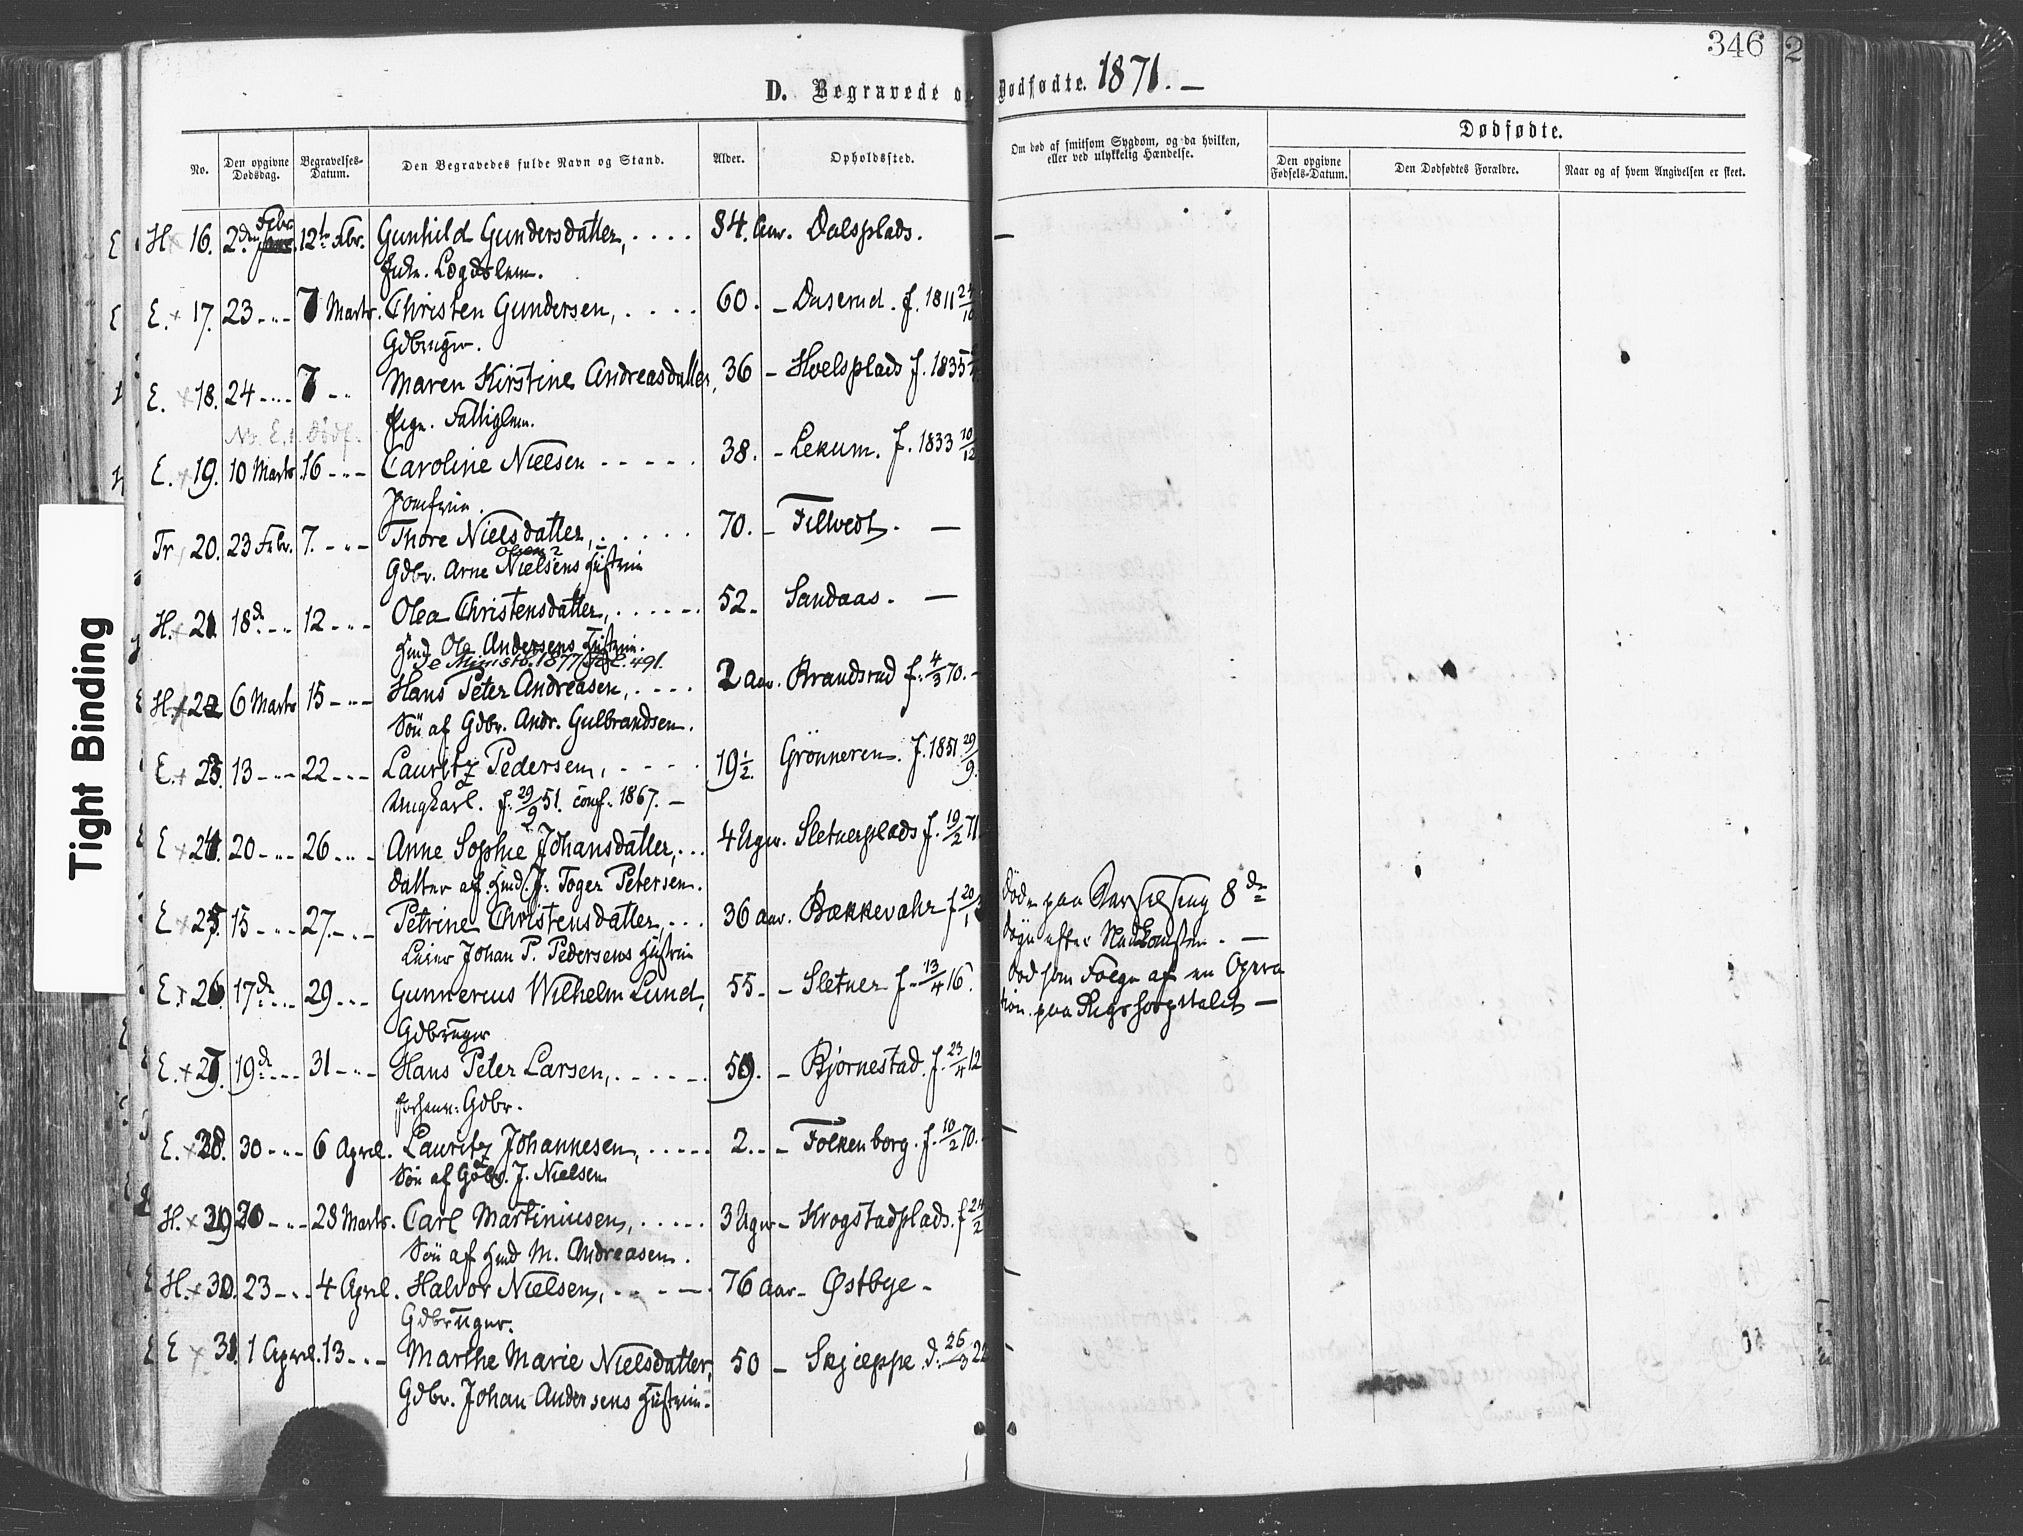 346
2
D. Begravede og Dødfødte. 1871. —
No.
Den opgivne Dødsdag.
Begravelses-Datum.
Den Begravedes fulde Navn og Stand.
Alder.
Opholdssted.
Om død af smitsom Sygdom, og da hvilken, eller ved ulykkelig Hændelse.
Dødfødte.
Den opgivne Fødsels-Datum.
Den Dødfødtes Forældre.
Naar og af hvem Angivelsen er skeet.
Tight Binding
H × 16. 2den Febr. 12te Febr. Gunhild Gundersdatter, .... 84. Aar. Dalsplads. —
Lægdslem.
E. × 17. 23 - " - 7 Marts. Christen Gundersen, .... 60. - Duserud. f. 1811 24/10
Gdbruger.
E. × 18. 24 - " - 7 - " Maren Kirstine Andreasdatter, 36 - Hoelsplads f. 1835
Pige. Fattiglem.
E. × 19. 10 Marts 16 - " - Caroline Nielsen - - - - - 38. - Lekum. f. 1833 10/12
Jomfru.
Tr. 20. 23 Febr. 7. - " - Thore Nielsdatter, ..... 70. - Filtvedt. —
Olsen?
Gdbr. Arne Nielsens Hustru
H. × 21. 18d - " - 12 - " - Olea Christensdatter, ..... 52. Sandaas. —
Hmd. Ole Andersens Hustru.
Se Ministb. 1877 Fol. 491.
H. × 22 6 Marts 15 - " - Hans Peter Andreasen, .... 2 Aar. Brandsrud f. 4/3 70. -
Søn af Gdbr. Andr. Gulbrandsen.
E. × 23. 13 - " - 22 - " - Lauritz Pedersen, .... 19½ Grönneren. f. 1851 29/9.
Ungkarl. f. 29/9 51. conf. 1867. —
E × 24. 20 - " - 26 - " - Anne Sophie Johansdatter, ... 4 Uger. Sletnerplads f. 19/2 71
Datter af Hmd. J. Toger Petersen.
E × 25. 15 - " - 27. - " - Petrine Christensdatter, ... 36 Aar. Bækkevahr f 20/1 Døde paa Barselseng 8de
Leier Johan P. Pedersens Hustru Døgn efter Nedkomsten. —
E. × 26. 17d - " - 29 - " - Gunnerius Wilhelm Lund, 55. - Sletner f. 13/4 16. Død som Følge af en Opera
Gdbruger tion. paa Rigshospitalet —
E. × 27. 19d - " - 31 - " - Hans Peter Larsen, ..... 59. - Bjornestad. f. 23/4 12
forhenv: Gdbr.
E. × 28. 30 - " - 6 April. Lauritz Johannesen, ..... 2. - - Folkenborg. f. 10/2 70. -
Søn af Gdbr. J. Nielsen
H. × 29 20 - " - 28 Marts. Carl Martiniusen, ..... 3 Uger - Krogstadplads. f 24/2
Søn af Hmd M. Andreasen.
H. × 30. 23 - " - 4 April. Halvor Nielsen, ..... 76 Aar - Østbye -
Gdbruger.
E × 31. 1 April. 13 - " - Marthe Marie Nielsdatter, 50 - Skjæppe d. 26/3 22
Gdbr. Johan Andersens Hustru -